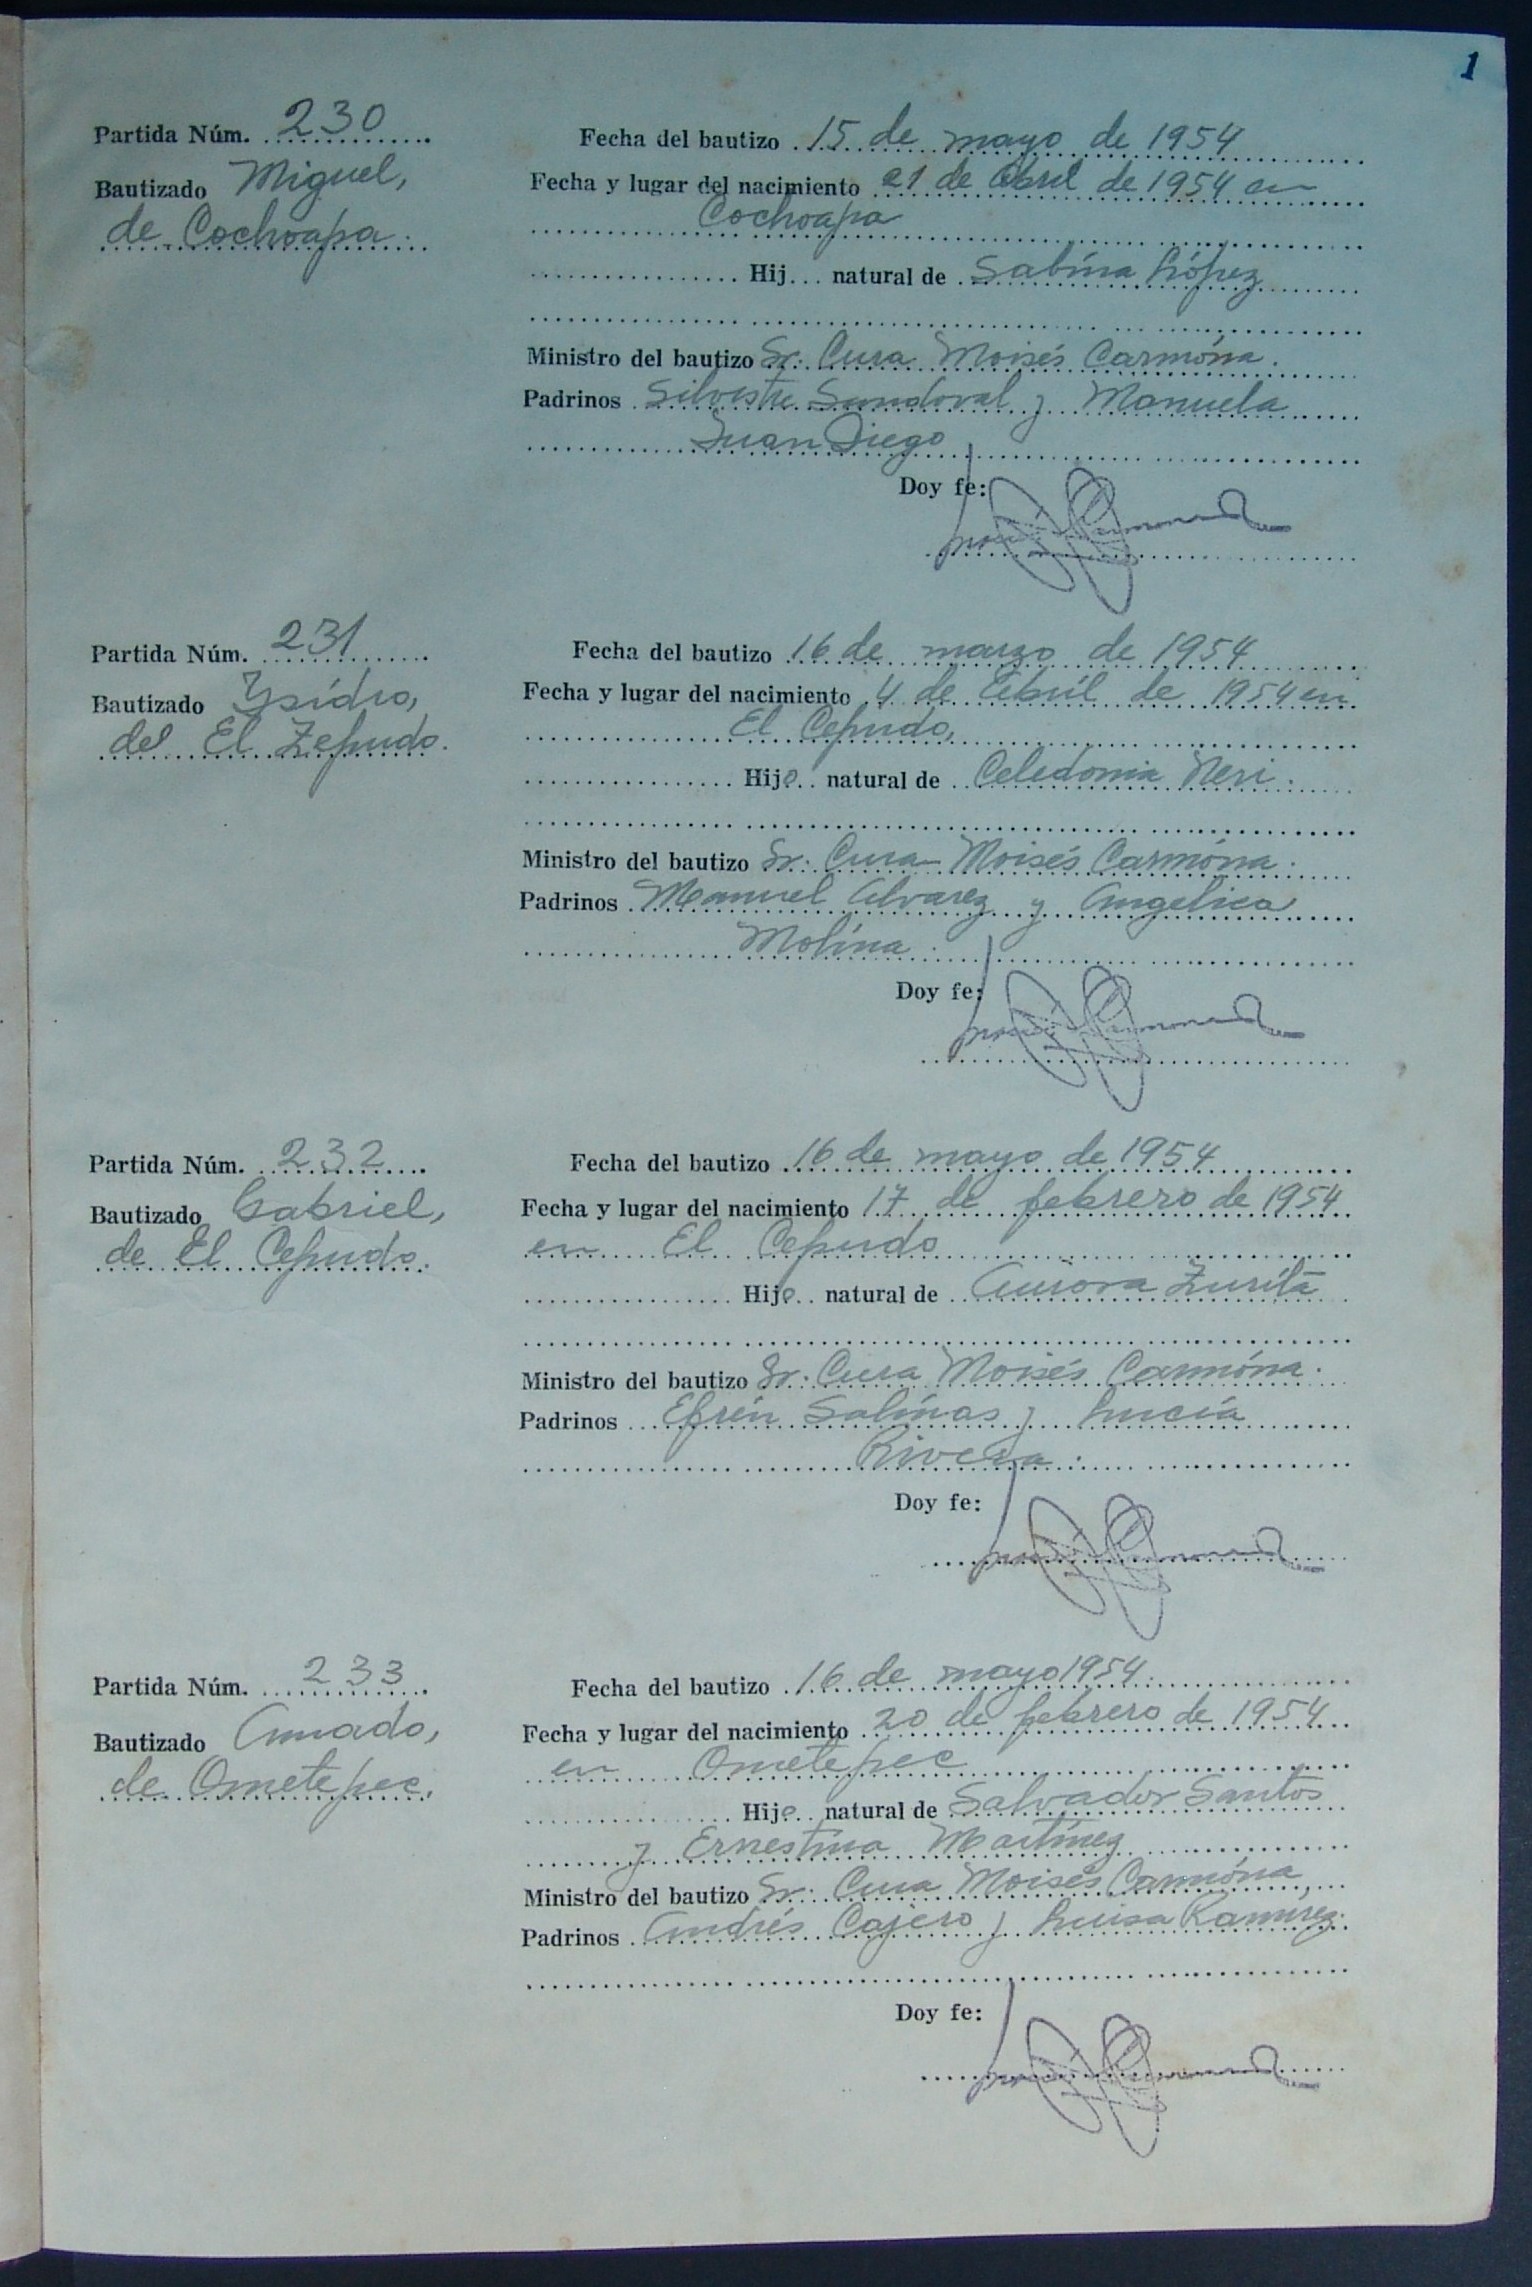 1
Partida Núm. 230
Bautizado Miguel,
de Cochoapa.
Fecha del bautizo 15 de mayo de 1954
Fecha y lugar del nacimiento 21 de Abril de 1954 en
Cochoapa
Hij... natural de Sabina López
Ministro del bautizo Sr. Cura Moisés Carmóna.
Padrinos Silvestre Sandoval y Manuela
Juan Diego
Doy fe:
Partida Núm. 231
Bautizado Ysidro,
del El Zepudo.
Fecha del bautizo 16 de marzo de 1954
Fecha y lugar del nacimiento 4 de Abril de 1954 en
El Cepudo,
Hijo natural de Celedonia Neri.
Ministro del bautizo Sr. Cura Moisés Carmóna.
Padrinos Manuel Alvarez y Angelica
Molina.
Doy fe:
Partida Núm. 232
Bautizado Gabriel,
de El Cepudo.
Fecha del bautizo 16 de mayo de 1954
Fecha y lugar del nacimiento 17 de febrero de 1954
en El Cepudo
Hijo natural de Aurora Zurita
Ministro del bautizo Sr. Cura Moisés Carmóna.
Padrinos Efrén Salinas y Lucía
Rivera.
Doy fe:
Partida Núm. 233
Bautizado Amado,
de Ometepec.
Fecha del bautizo 16 de mayo 1954.
Fecha y lugar del nacimiento 20 de febrero de 1954
en Ometepec
Hijo natural de Salvador Santos
y Ernestina Martínez
Ministro del bautizo Sr. Cura Moisés Carmóna,
Padrinos Andrés Cajero y Luisa Ramirez.
Doy fe: